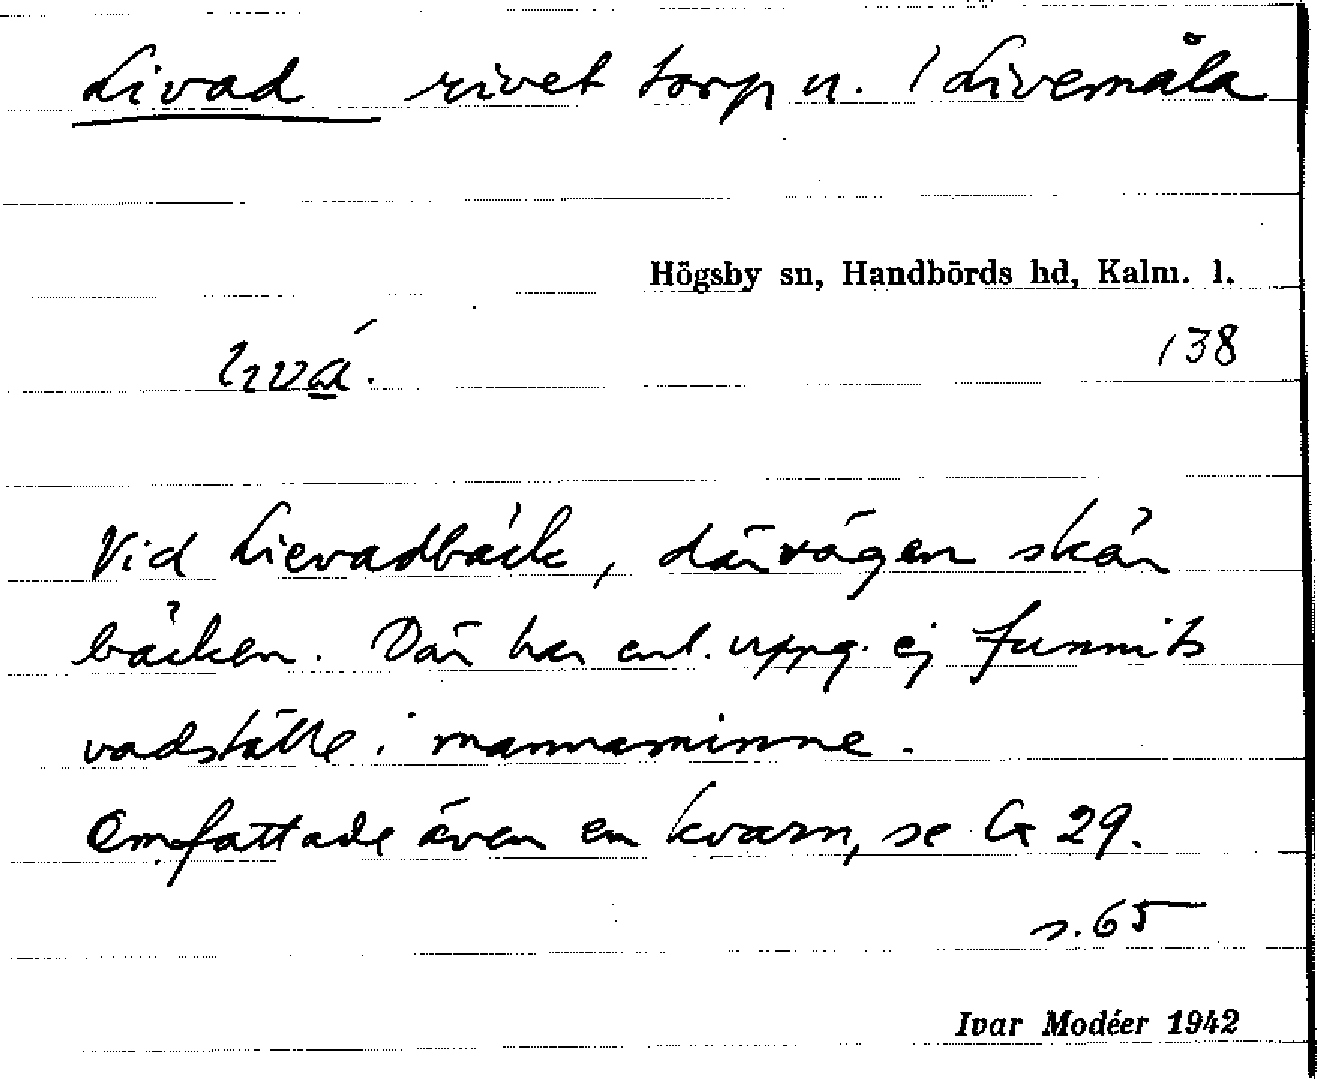 Livad rivet torp u. / Livemåla
Högsby sn, Handbörds hd, Kalm. l.
138
Vid Lievadbäck, där vägen skär
bäcken. Där har enl. uppg. ej funnits
vadställe i mannaminne.
Omfattade även en kvarn, se G 29.
s. 65
Ivar Modéer 1942